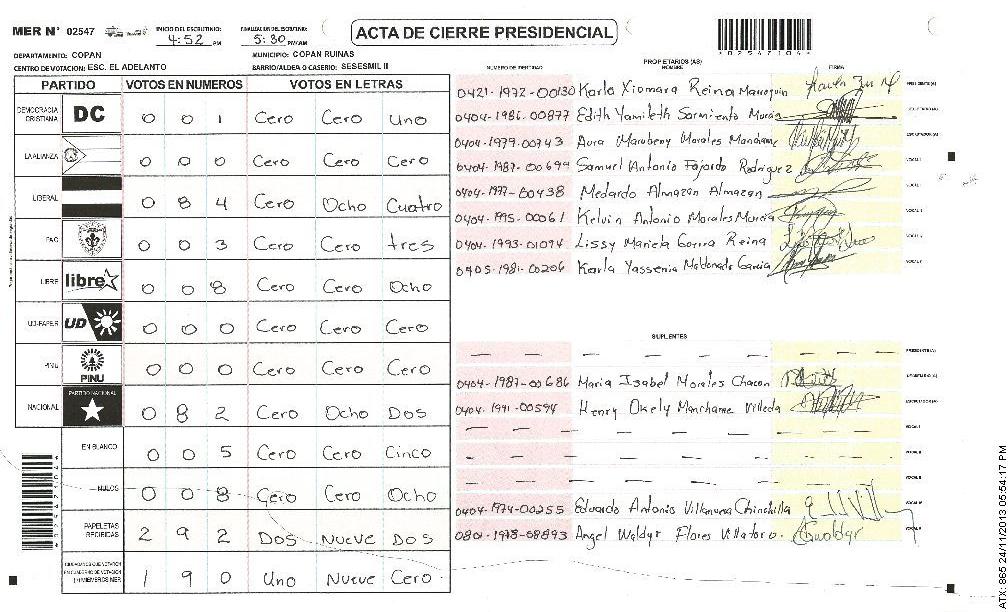 MER N° 02547
INICIO DEL ESCRUTINIO: 4:52 PM
FINALIZACION DEL ESCRUTINIO: 5:30 PM/AM
ACTA DE CIERRE PRESIDENCIAL
DEPARTAMENTO: COPAN
MUNICIPIO: COPAN RUINAS
CENTRO DE VOTACION: ESC. EL ADELANTO
BARRIO/ALDEA O CASERIO: SESESMIL II
PARTIDO VOTOS EN NUMEROS VOTOS EN LETRAS
DEMOCRACIA CRISTIANA DC 0 0 1 Cero Cero Uno
LA ALIANZA 0 0 0 Cero Cero Cero
LIBERAL 0 8 4 Cero Ocho Cuatro
PAC 0 0 3 Cero Cero tres
LIBRE libre 0 0 8 Cero Cero Ocho
UD-FAPER UD 0 0 0 Cero Cero Cero
PINU PINU 0 0 0 Cero Cero Cero
NACIONAL PARTIDO NACIONAL 0 8 2 Cero Ocho Dos
EN BLANCO 0 0 5 Cero Cero Cinco
NULOS 0 0 8 Cero Cero Ocho
PAPELETAS RECIBIDAS 2 9 2 Dos Nueve Dos
CIUDADANOS QUE VOTARON EN CUADERNO DE VOTACION (+) MIEMBROS MER 1 9 0 Uno Nueve Cero
PROPIETARIOS (AS)
NUMERO DE IDENTIDAD NOMBRE FIRMA
0421-1972-00130 Karla Xiomara Reina Marroquin PRESIDENTE (A)
0404-1986-00877 Edith Yamileth Sarmiento SECRETARIO (A)
0404-1979-00743 Aura Morales Manchame ESCRUTADOR (A)
0404-1987-00694 Samuel Antonio Fajardo Rodriguez VOCAL I
0404-1977-00438 Medardo Almazan Almazan
0404-1995-00061 Kelvin Antonio Morales Murcia
0404-1993-01094 Lissy Mariela Guerra Reina
0405-1981-00206 Karla Yassenia Maldonado Garcia
SUPLENTES
PRESIDENTE (A)
0404-1987-00686 Maria Isabel Morales Chacon SECRETARIO (A)
0404-1991-00594 Henry Okely Manchame Villeda ESCRUTADOR (A)
VOCAL I
VOCAL II
VOCAL III
0404-1974-00255 Eduardo Antonio Villanueva Chinchilla
0801-1978-08893 Angel Waldyr Flores Villatoro
*02547104*
ATX: 865 24/11/2013 05:54:17 PM